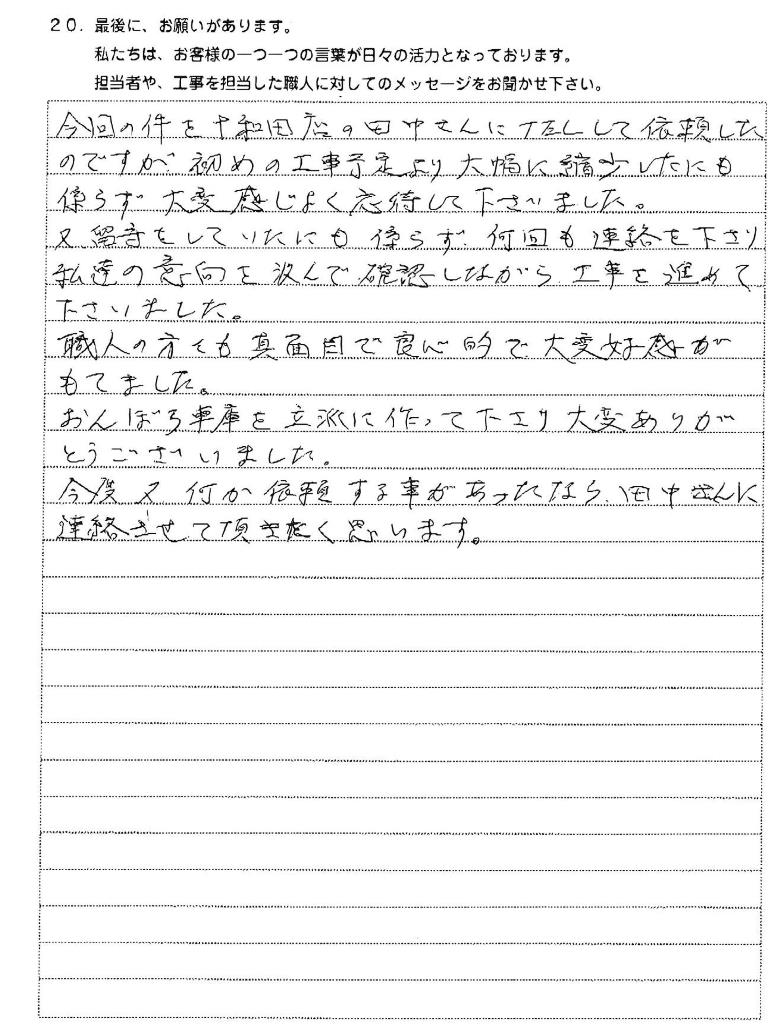 20. 最後に、お願いがあります。
私たちは、お客様の一つ一つの言葉が日々の活力となっております。
担当者や、工事を担当した職人に対してのメッセージをお聞かせ下さい。
今回の件を十和田店の田中さんにTELして依頼した
のですが、初めの工事予定より大幅に縮少したにも
係らず大変感じよく応待して下さいました。
又留守をしていたにも係らず、何回も連絡を下さり
私達の意向を汲んで確認しながら工事を進めて
下さいました。
職人の方ても真面目で良心的で大変好感が
もてました。
おんぼろ車庫を立派に作って下さり大変ありが
とうございました。
今度又何か依頼する事があったなら、田中さんに
連絡させて頂きたく思います。